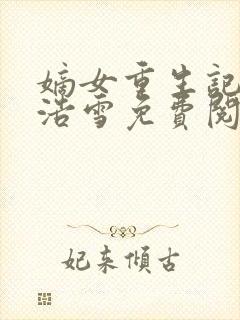 嫡女重生記
浩雪免費閱
妃來傾古